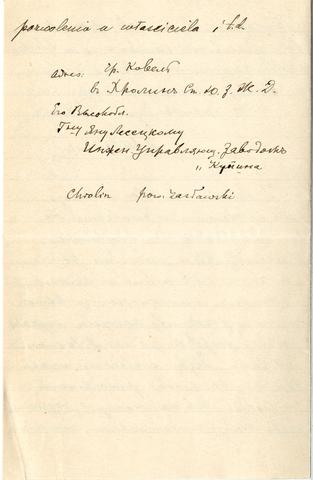 pozwolenia u właściciela i t.d.
Адрес: Гр. Ковель
в Хролинъ Ст. Ю. З. Ж. Д.
Его Высокобл.
Гну Яну Лесецкому
Инжен. Управляющ. Заводомъ
„ Купина
Chrolin pow. Zasławski